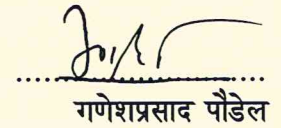 गणेशप्रसाद पौडेल